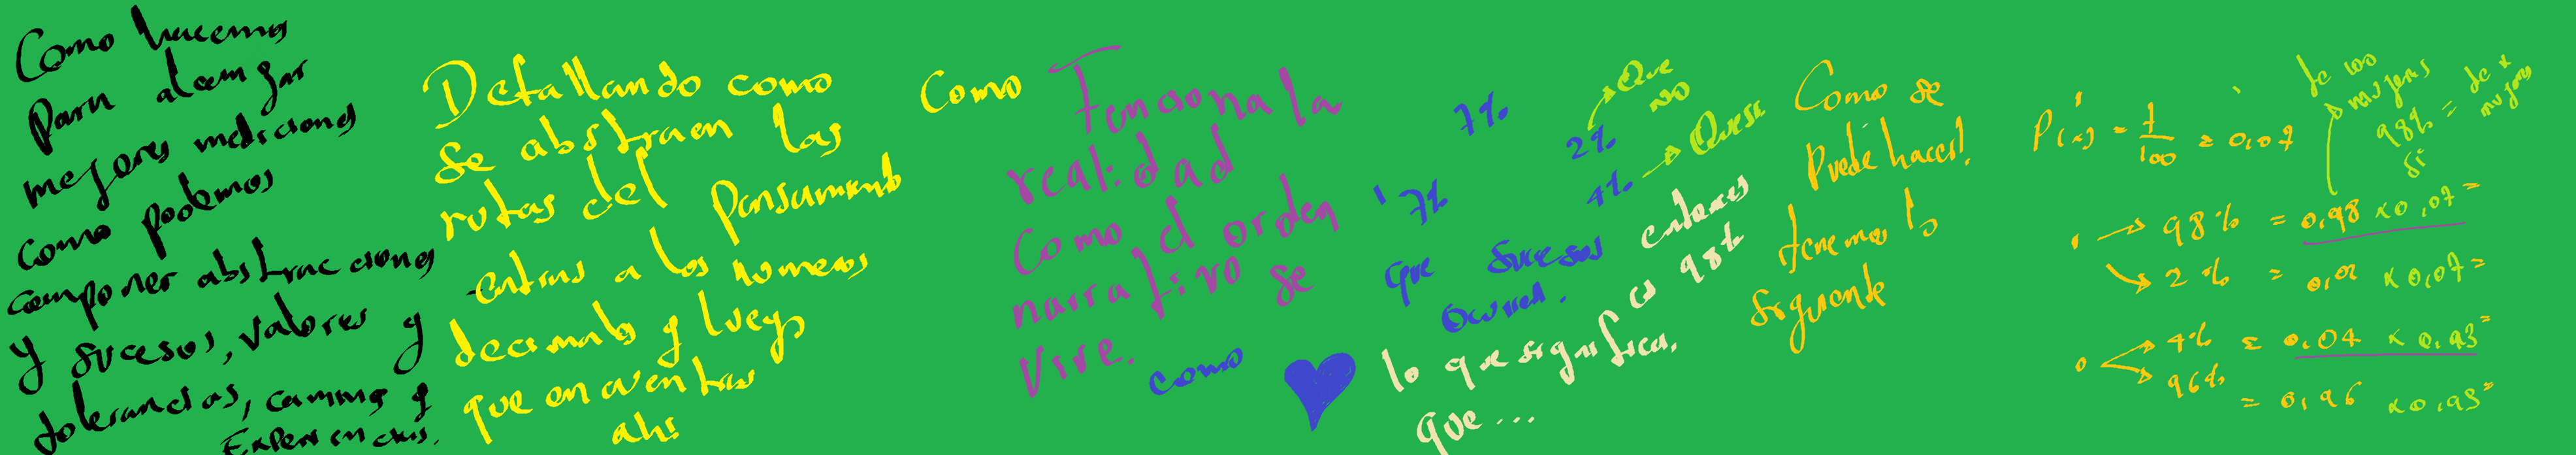 Como hacemos
Para alcanzar
mejores mediciones
como podemos
componer abstracciones
y sucesos, valores y
tolerancias, caminos y
Experiencias.
Detallando como
se abstraen las
rutas del Pensamiento
entras a los numeros
decimales y luego
que encuentras
ahi
Como Funciona la
realidad
Como el orden
narrativo se
Vive.
como
7%
2% Que
NO
7%
4% Que si
que sucesos
ocurren.
entonces
es 98%
lo que significa,
que...
Como se
Puede hacer!
tenemos lo
siguiente
P(x) = 7/100 = 0,07
de 100
mujeres
98% = de x
mujeres
si
1 98% = 0,98 x0,07 =
2% = 0,02 x0,07 =
0 4% = 0,04 x 0,93 =
96% = 0,96 x0,93 =